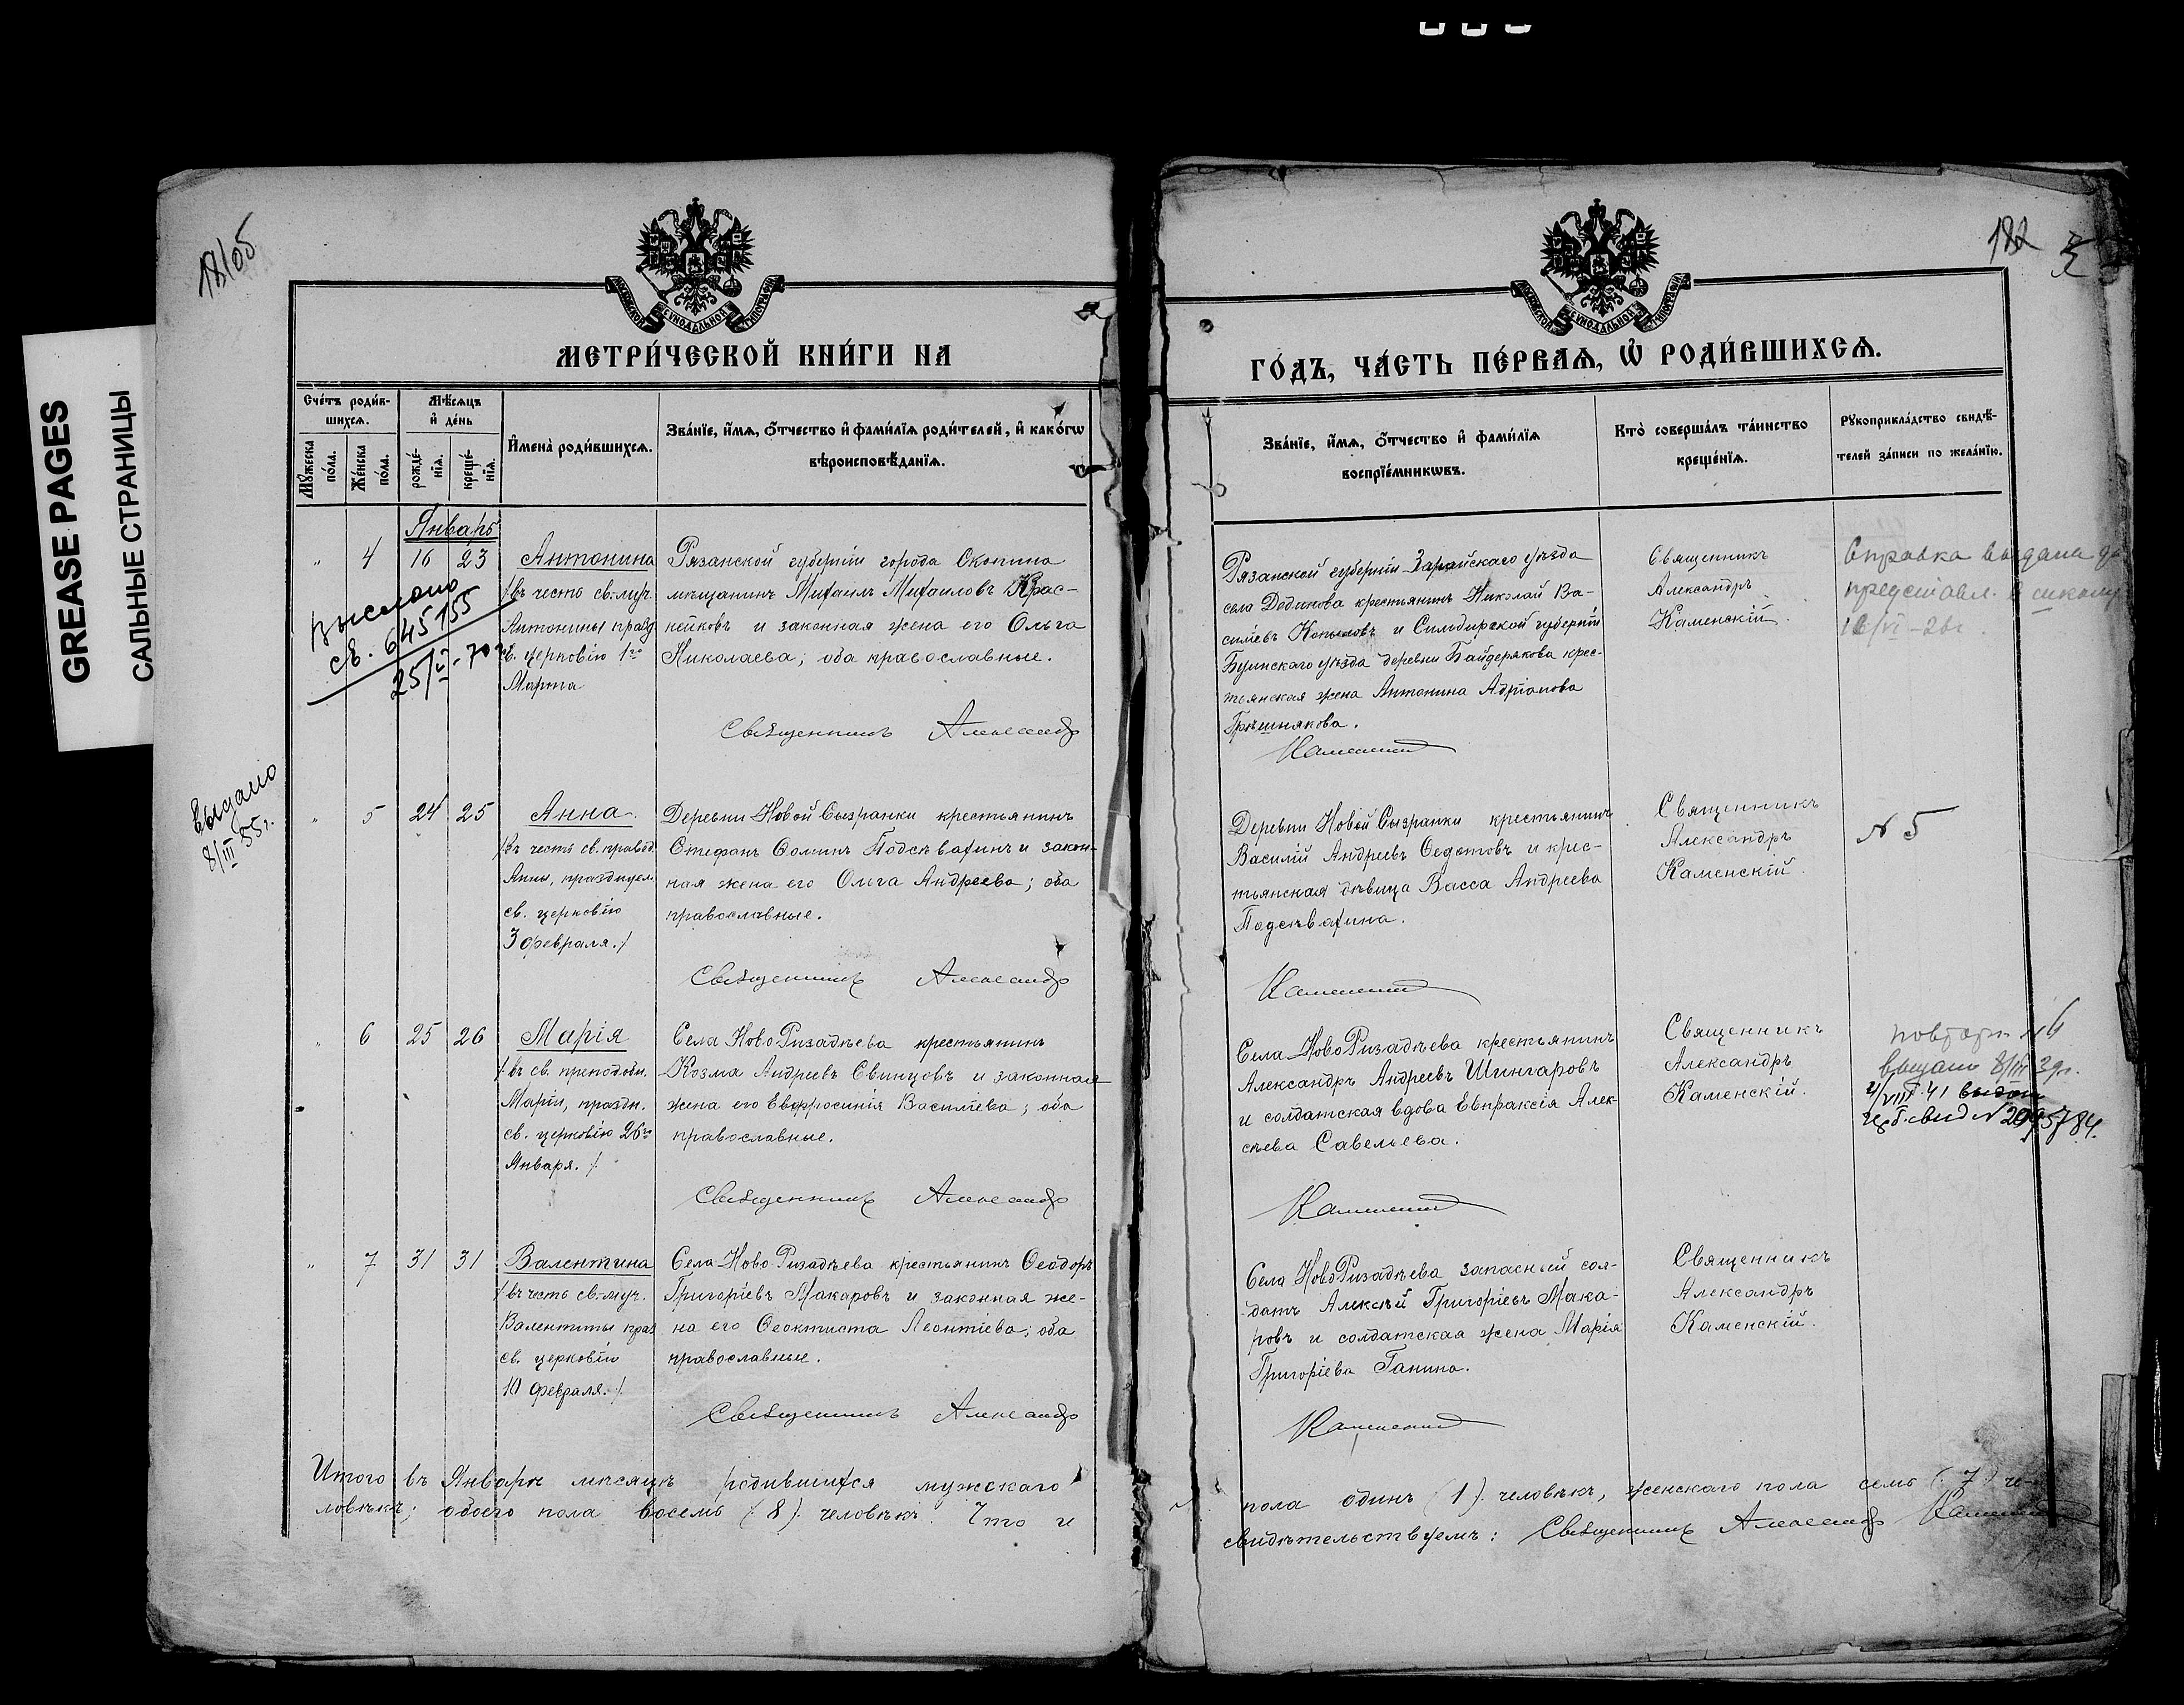 GREASE PAGES
САЛЬНЫЕ СТРАНИЦЫ
182
МЕТРИ́ЧЕСКОЙ КНИ́ГИ НА
ГО́ДЪ, ЧА́СТЬ ПЕ́РВАѦ, Ѡ҆ РОДИ́ВШИХСѦ.
Сче́тъ роди́в-
шихсѧ.
Мꙋ́жеска по́ла.
Же́нска по́ла.
Мѣ́сѧцъ
и҆ де́нь
рожде́-нїѧ.
креще́-нїѧ.
И҆мена̀ роди́вшихсѧ.
Зва́нїе, и҆́мѧ, ѻ҆́тчество и҆ фами́лїѧ роди́телей, и҆ како́гѡ
вѣроисповѣ́данїѧ.
Зва́нїе, и҆́мѧ, ѻ҆́тчество и҆ фами́лїѧ
воспрїе́мникѡвъ.
Кто̀ соверша́лъ та́инство
креще́нїѧ.
Рꙋкоприкла́дство свидѣ́-
телей за́писи по жела́нїю.
Январь
" 4 16 23
Антонина
/въ честь св. муч.
Антонины празд.
св. церковію 1го
Марта
Рязанской губерніи города Скопина
мѣщанинъ Михаилъ Михаиловъ Крас-
нейковъ и законная жена его Ольга
Николаева; оба православные.
Священникъ Александръ
Рязанской губерніи Зарайскаго уѣзда
села Дединова крестьянинъ Николай Ва-
силіевъ Копыловъ и Симбирской губерніи
Буинскаго уѣзда деревни Байдерякова крес-
тьянская жена Антонина Адріанова
Грѣшнякова.
Каменскій
Священникъ
Александръ
Каменскій.
Справка выдана
представл. в школу
выслано
св. 645155
выдано
8/III 55г.
" 5 24 25
Анна.
/въ честь св. правед.
Анны, празднуем.
св. церковію
3 февраля./
Деревни Новой Сызранки крестьянинъ
Стефанъ Ѳоминъ Подсѣвахинъ и закон-
ная жена его Ольга Андреева; оба
православные.
Священникъ Александръ
Деревни Новой Сызранки крестьянинъ
Василій Андреевъ Ѳедотовъ и крес-
тьянская дѣвица Васса Андреева
Подсѣвахина.
Каменскій
Священникъ
Александръ
Каменскій.
N 5
" 6 25 26
Марія
/въ св. преподобн.
Маріи, праздн.
св. церковію 26го
Января./
Села Ново-Ризадѣева крестьянинъ
Козма Андреевъ Свинцовъ и законная
жена его Евфросинія Василіева; оба
православные.
Священникъ Александръ
Села НовоРизадѣева крестьянинъ
Александръ Андреевъ Шингаровъ
и солдатская вдова Евпраксія Алек-
сѣева Савельева.
Каменскій
Священникъ
Александръ
Каменскій.
" 7 31 31
Валентина
/въ честь св. муч.
Валентины праз.
св. церковію
10 февраля./
Села Ново-Ризадѣева крестьянинъ Ѳеодоръ
Григоріевъ Макаровъ и законная же-
на его Ѳеоктиста Леонтіева; оба
православные.
Священникъ Александръ
Села НовоРизадѣева запасный сол-
датъ Алексѣй Григоріевъ Мака-
ровъ и солдатская жена Марія
Григоріева Ганина.
Каменскій
Священникъ
Александръ
Каменскій.
Итого въ Январѣ мѣсяцѣ родившихся мужскаго пола одинъ (1). человѣкъ, женскаго пола семь (7) че-
ловѣкъ; обоего пола восемь (8). человѣкъ. Что и свидѣтельствуемъ: Священникъ Александръ Каменскій